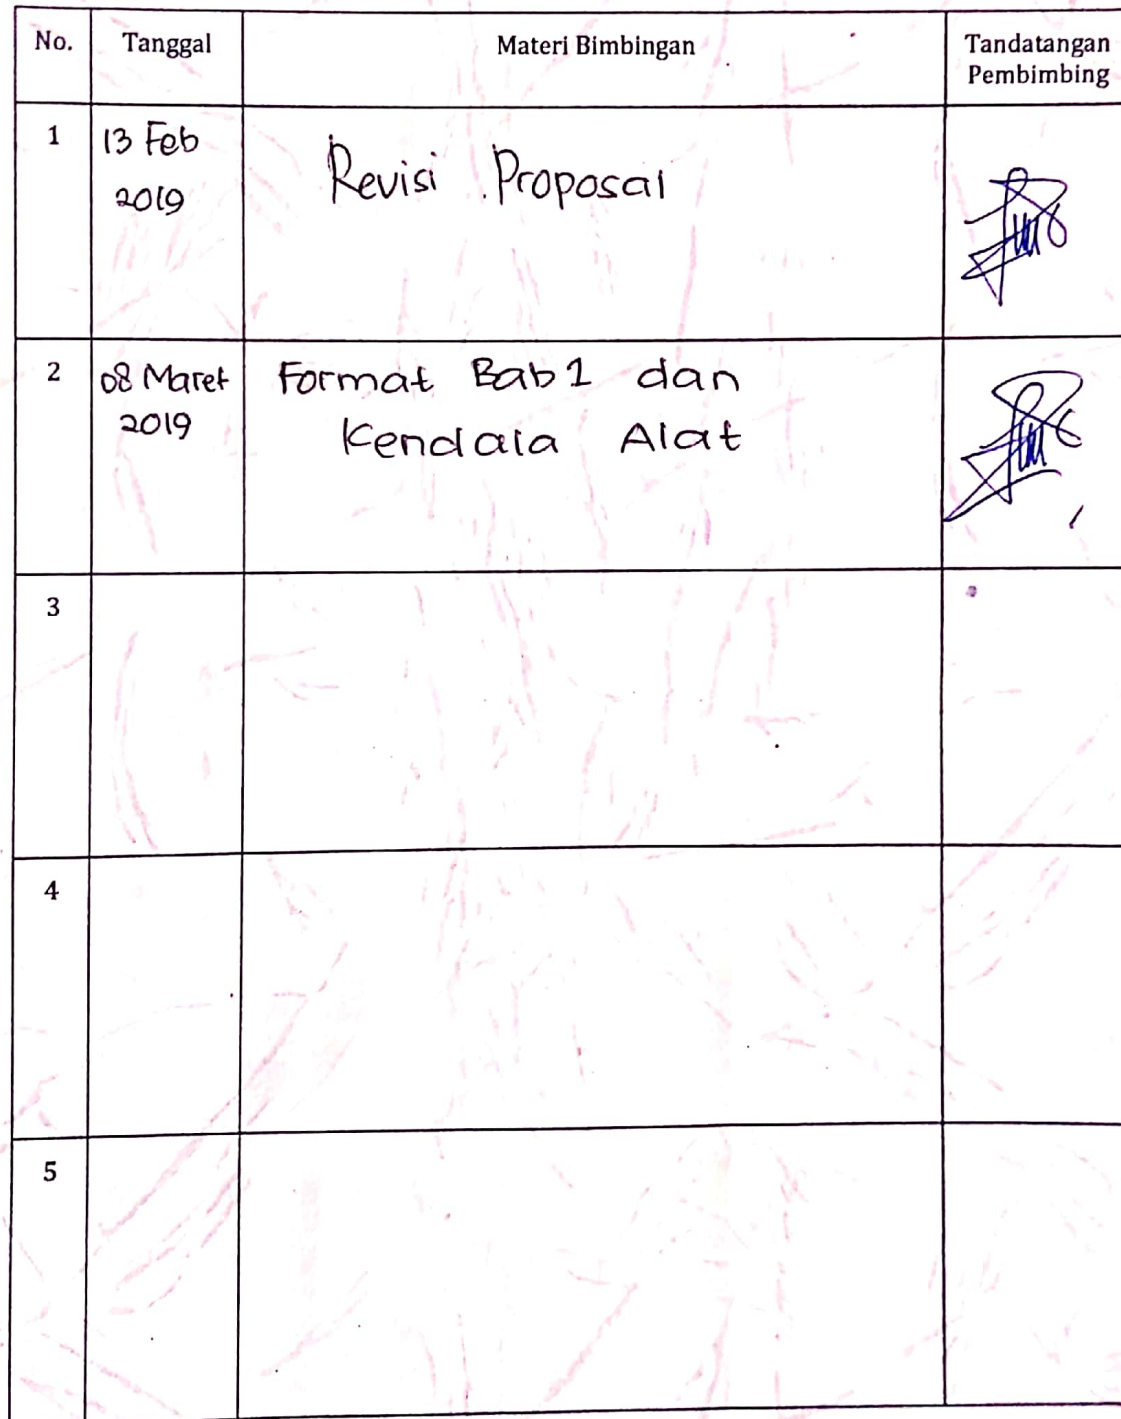 No. Tanggal Materi Bimbingan Tandatangan
Pembimbing
1 13 Feb Revisi Proposal
2019
2 08 Maret Format Bab 1 dan
2019 Kendala Alat
3
4
5